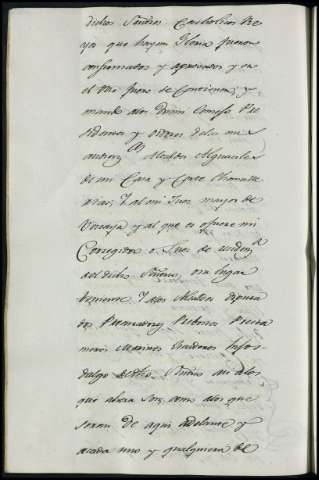 dichos Señores Catholicos Re
yes que hayan Gloria fueron
confirmados y aprovados y en
el Vso fuero se Contiene y
mando alos Demi Consejo Pre
sidentes y oidores delas mis
Audienz as Alcaldes Alguaciles
de mi Casa y Corte Chancille
rias, Y al mi Juez mayor de
Vizcaya y al que es o fuere mi
Corregidor o Juez de residenz a
del dicho Señorio, o su lugar
theniente Y alos Alcaldes Diputa
dos
Marinos Escuderos hijos
dalgo del dicho
que ahora son, como alos que
seran de aqui adelante y
acada uno y qualquiera de